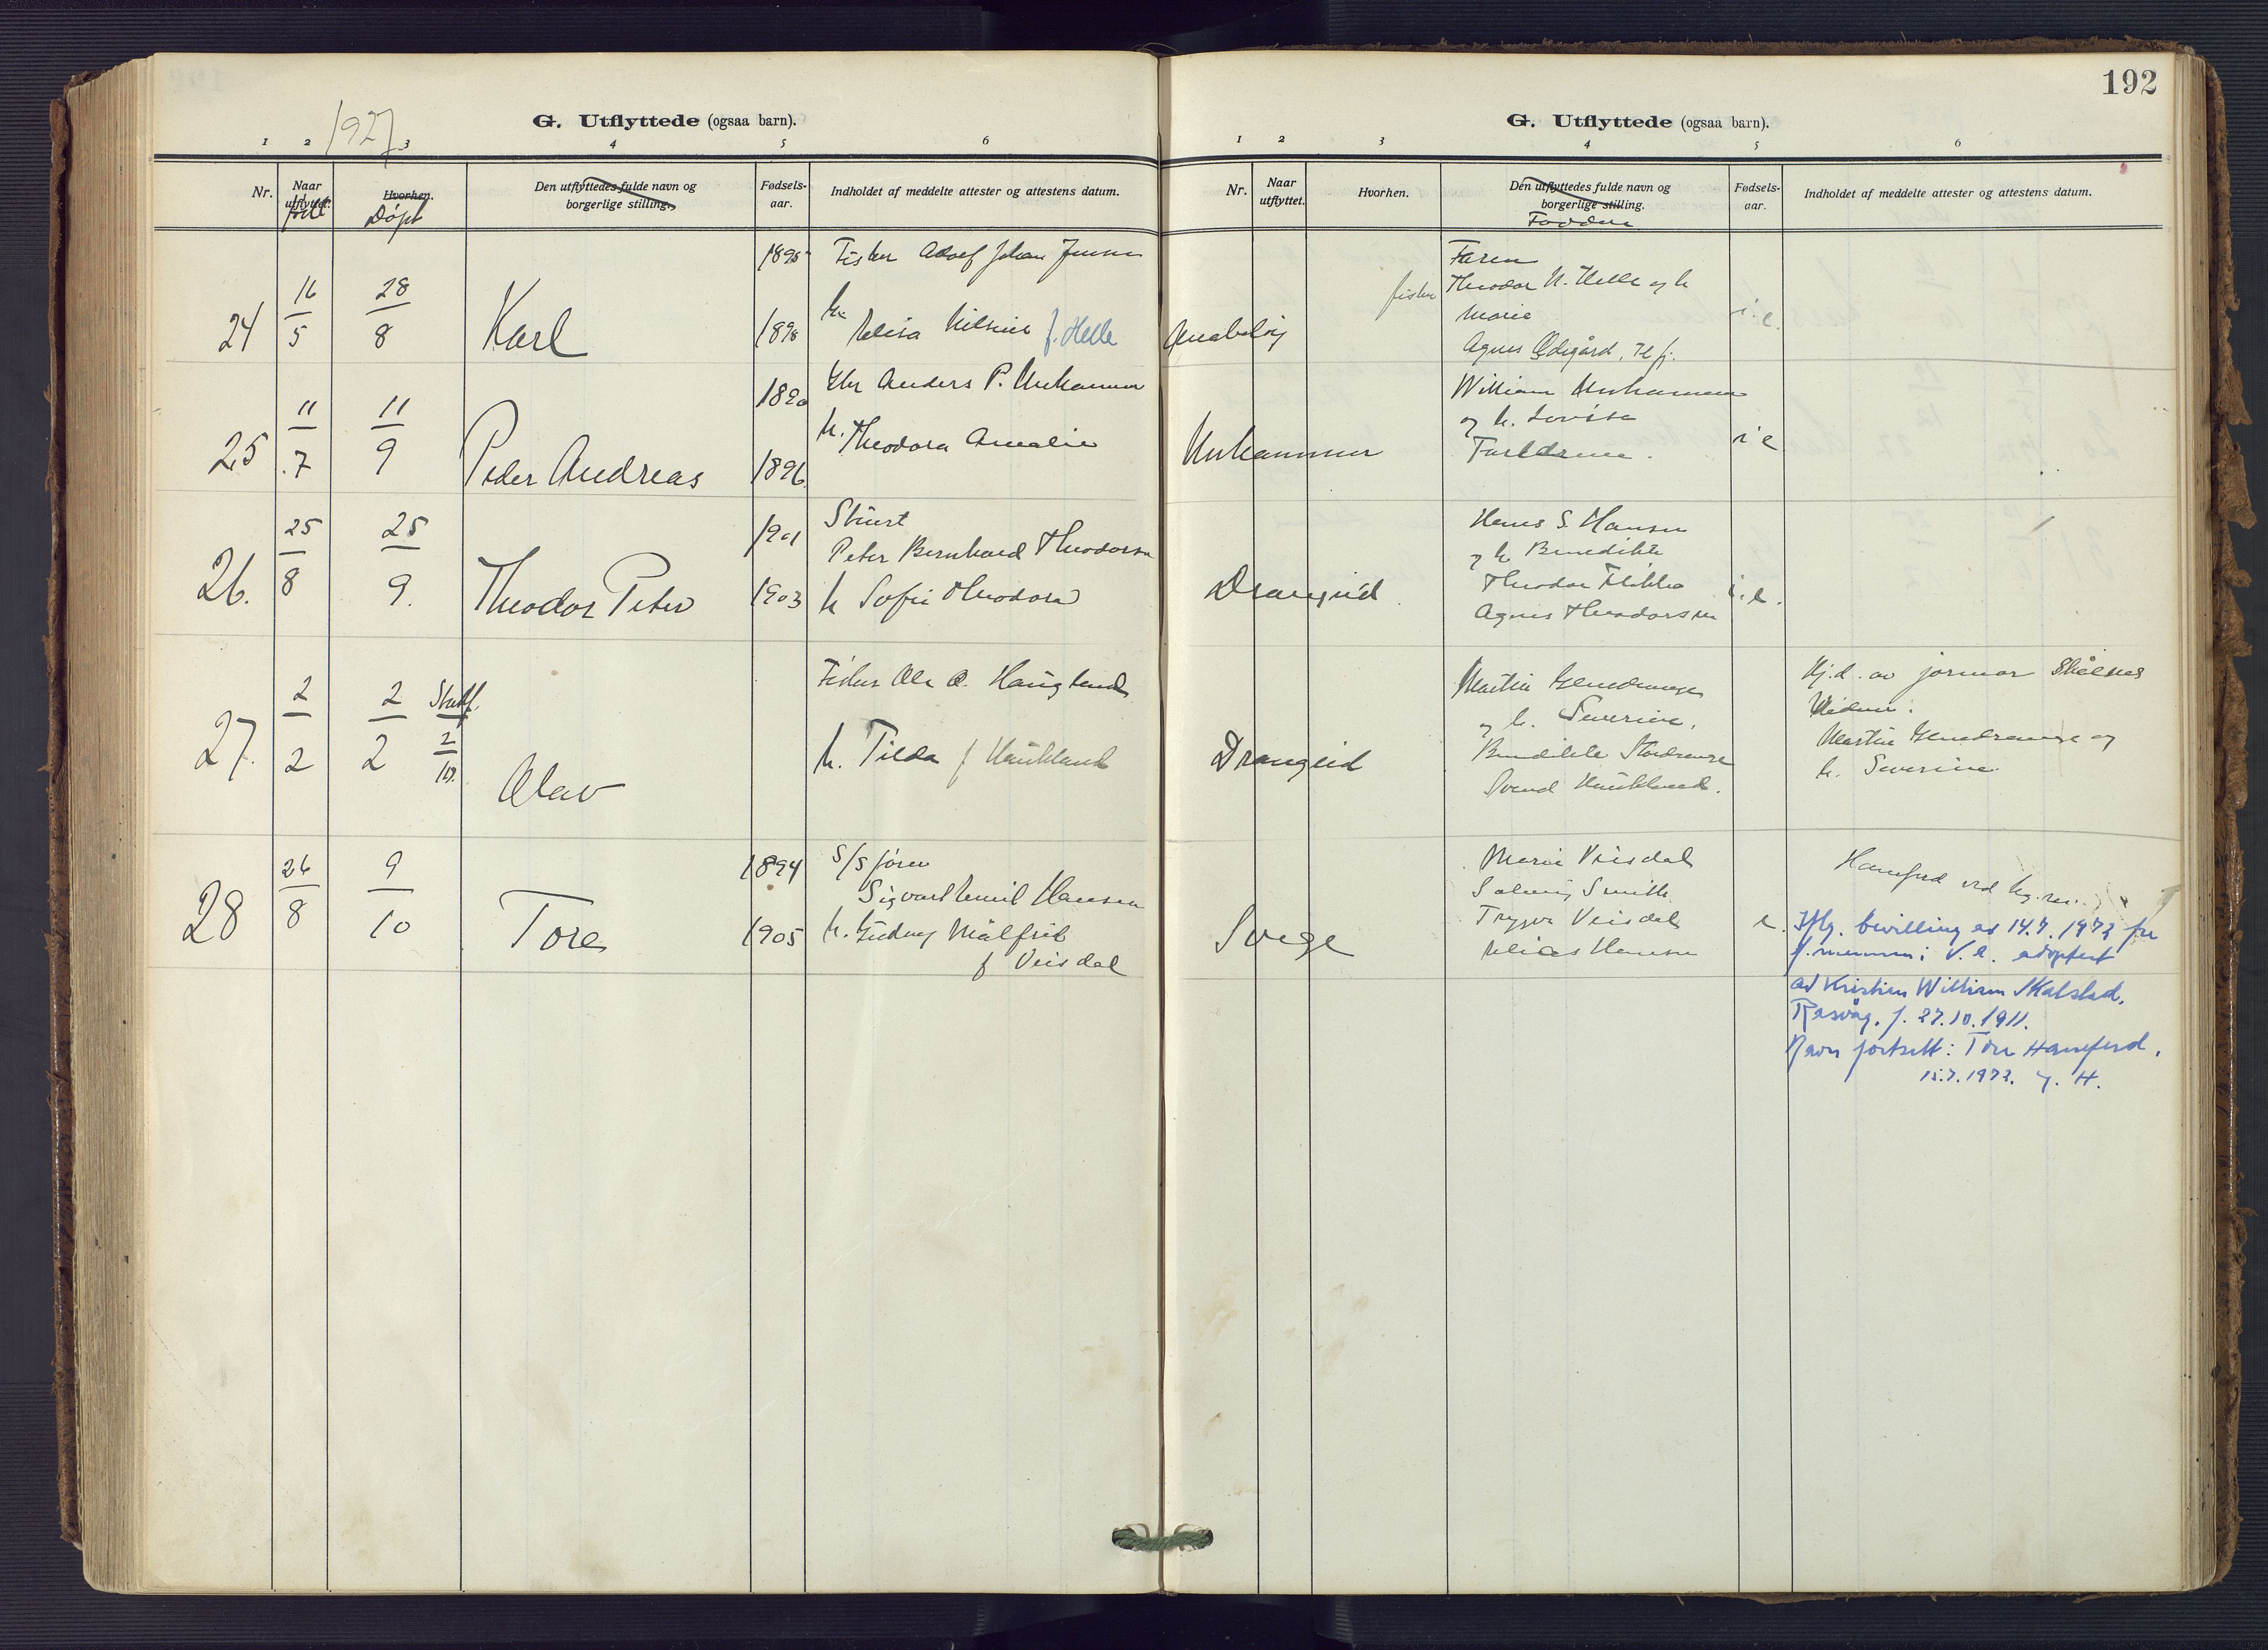 192
1927
G. Utflyttede (ogsaa barn).
1 2 3 4 5 6
Nr.
Naar utflyttet.
født
Hvorhen.
Døpt
Den utflyttedes fulde navn og
borgerlige stilling.
Fødsels-
aar.
Indholdet af meddelte attester og attestens datum.
24
16/5
28/8
Karl
1895
1898
Fisker Adolf Johan Jensen
h.
f. Helle
25
11/7
11/9
Peder Andreas
1890
1896
Gbr Anders P. Urhammer
h. Theodora Amalie
26.
25/8
25/9.
Theodor Peter
1901
1903
Peter Bernhard Theodorsen
h Sofie Theodora
27.
2/2
2/2
Stadf.
2/10.
Olav
Fisker Ole O. Haugland
h. Tilda f Haukland
28
26/8
9/10
Tore
1894
1905
Sigvart Emil Hansen
h. Gudny Målfrid
f Veisdal
G. Utflyttede (ogsaa barn).
1 2 3 4 5 6
Nr.
Naar
utflyttet.
Hvorhen.
Den utflyttedes fulde navn og
borgerlige stilling.
Faddere
Fødsels-
aar.
Indholdet af meddelte attester og attestens datum.
Anabeløy
fisker
Faren
Theodor N. Helle og h
Marie
Agnes Ødegård, Hf.
i.e.
Urhammer
William Urhammer
og h. Lovise
Forældrene.
i e
Drangeid
Hans S. Hansen
og h Benedikte
Theodor Flikka
Agnes Theodorsen
i.e.
Drangeid
og h. Severine.
Svend Haukland.
Hj.d. av jormor
Martin
h. Severine.
Svege
Marie Veisdal
Solveig Smith
Trygve Veisdal
Hansen
e.
Haneferd ved kg. res.
Iflg. bevilling av 14.7.1972 fra
f.mannen i V.A. adoptert
av Kristian William Skalstad,
Rasvåg, f. 27.10.1911.
Navn fortsatt: Tore Haneferd.
15.7.1972. H.